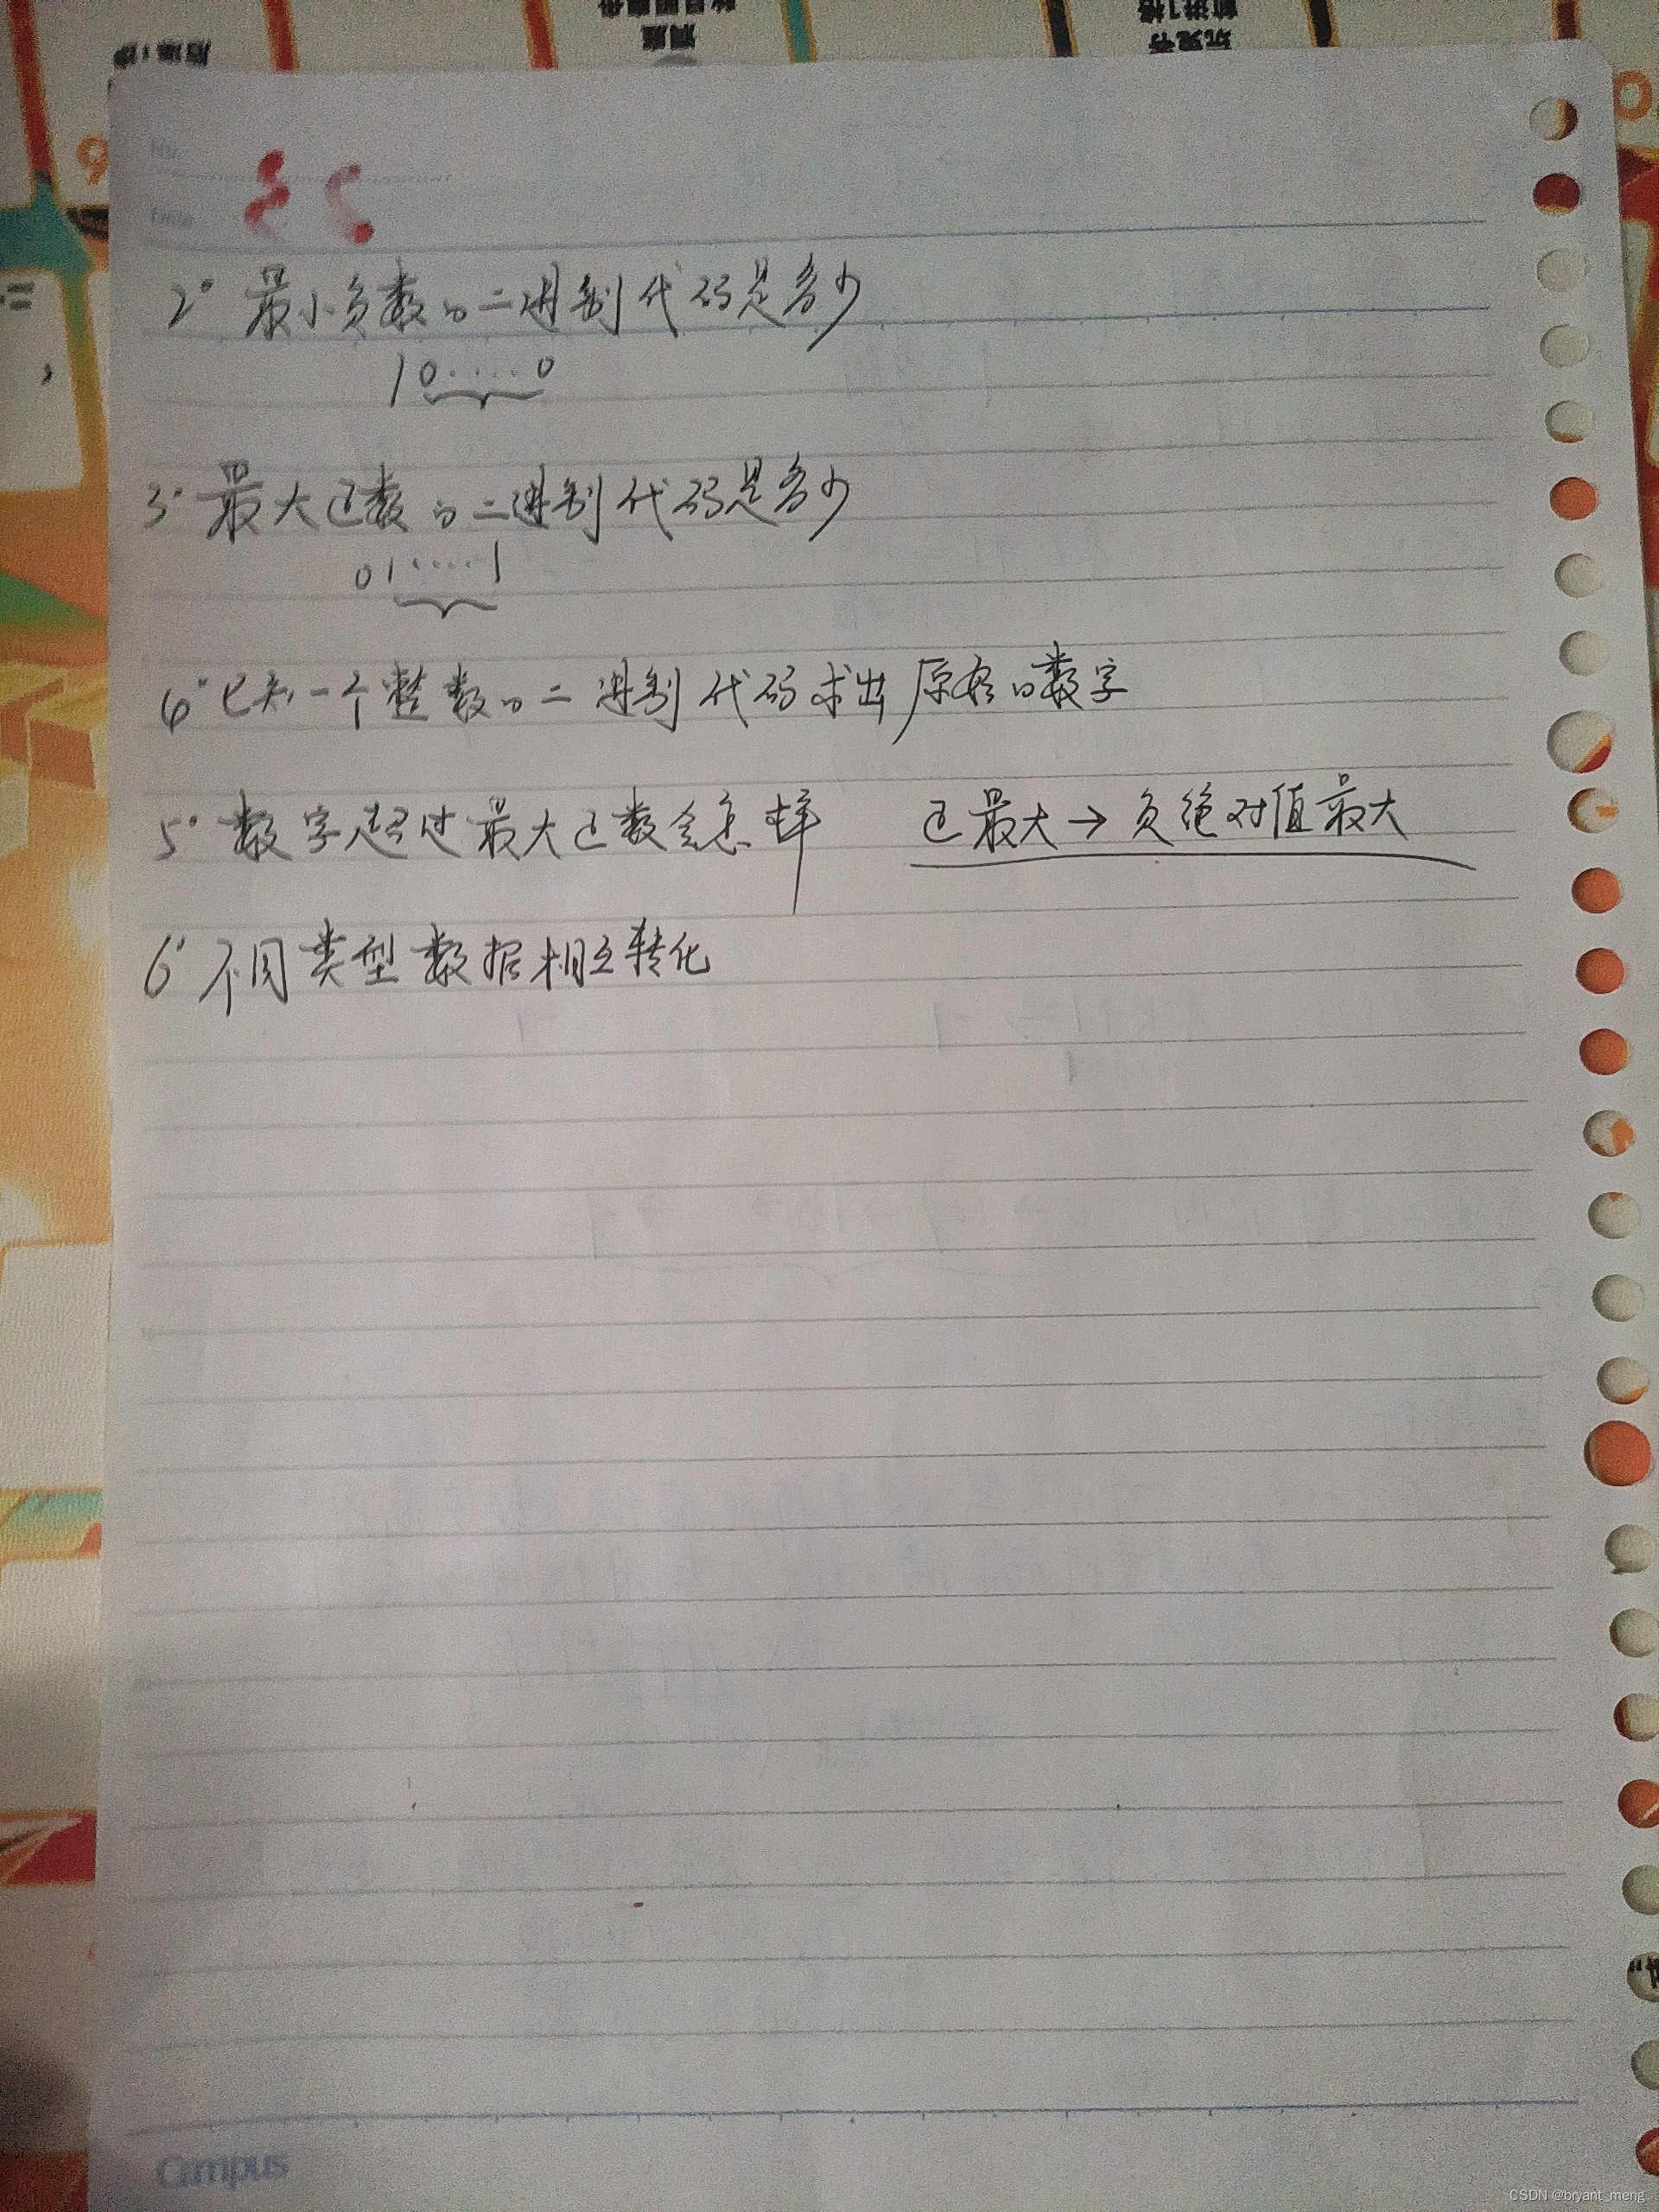 2° 最小负数的二进制代码是多少
10·····0
3° 最大正数的二进制代码是多少
01·····1
4° 已知一个整数的二进制代码求出原始的数字
5° 数字超过最大正数会怎样 正最大→负绝对值最大
6° 不同类型数据相互转化
Campus
CSDN @bryant_meng